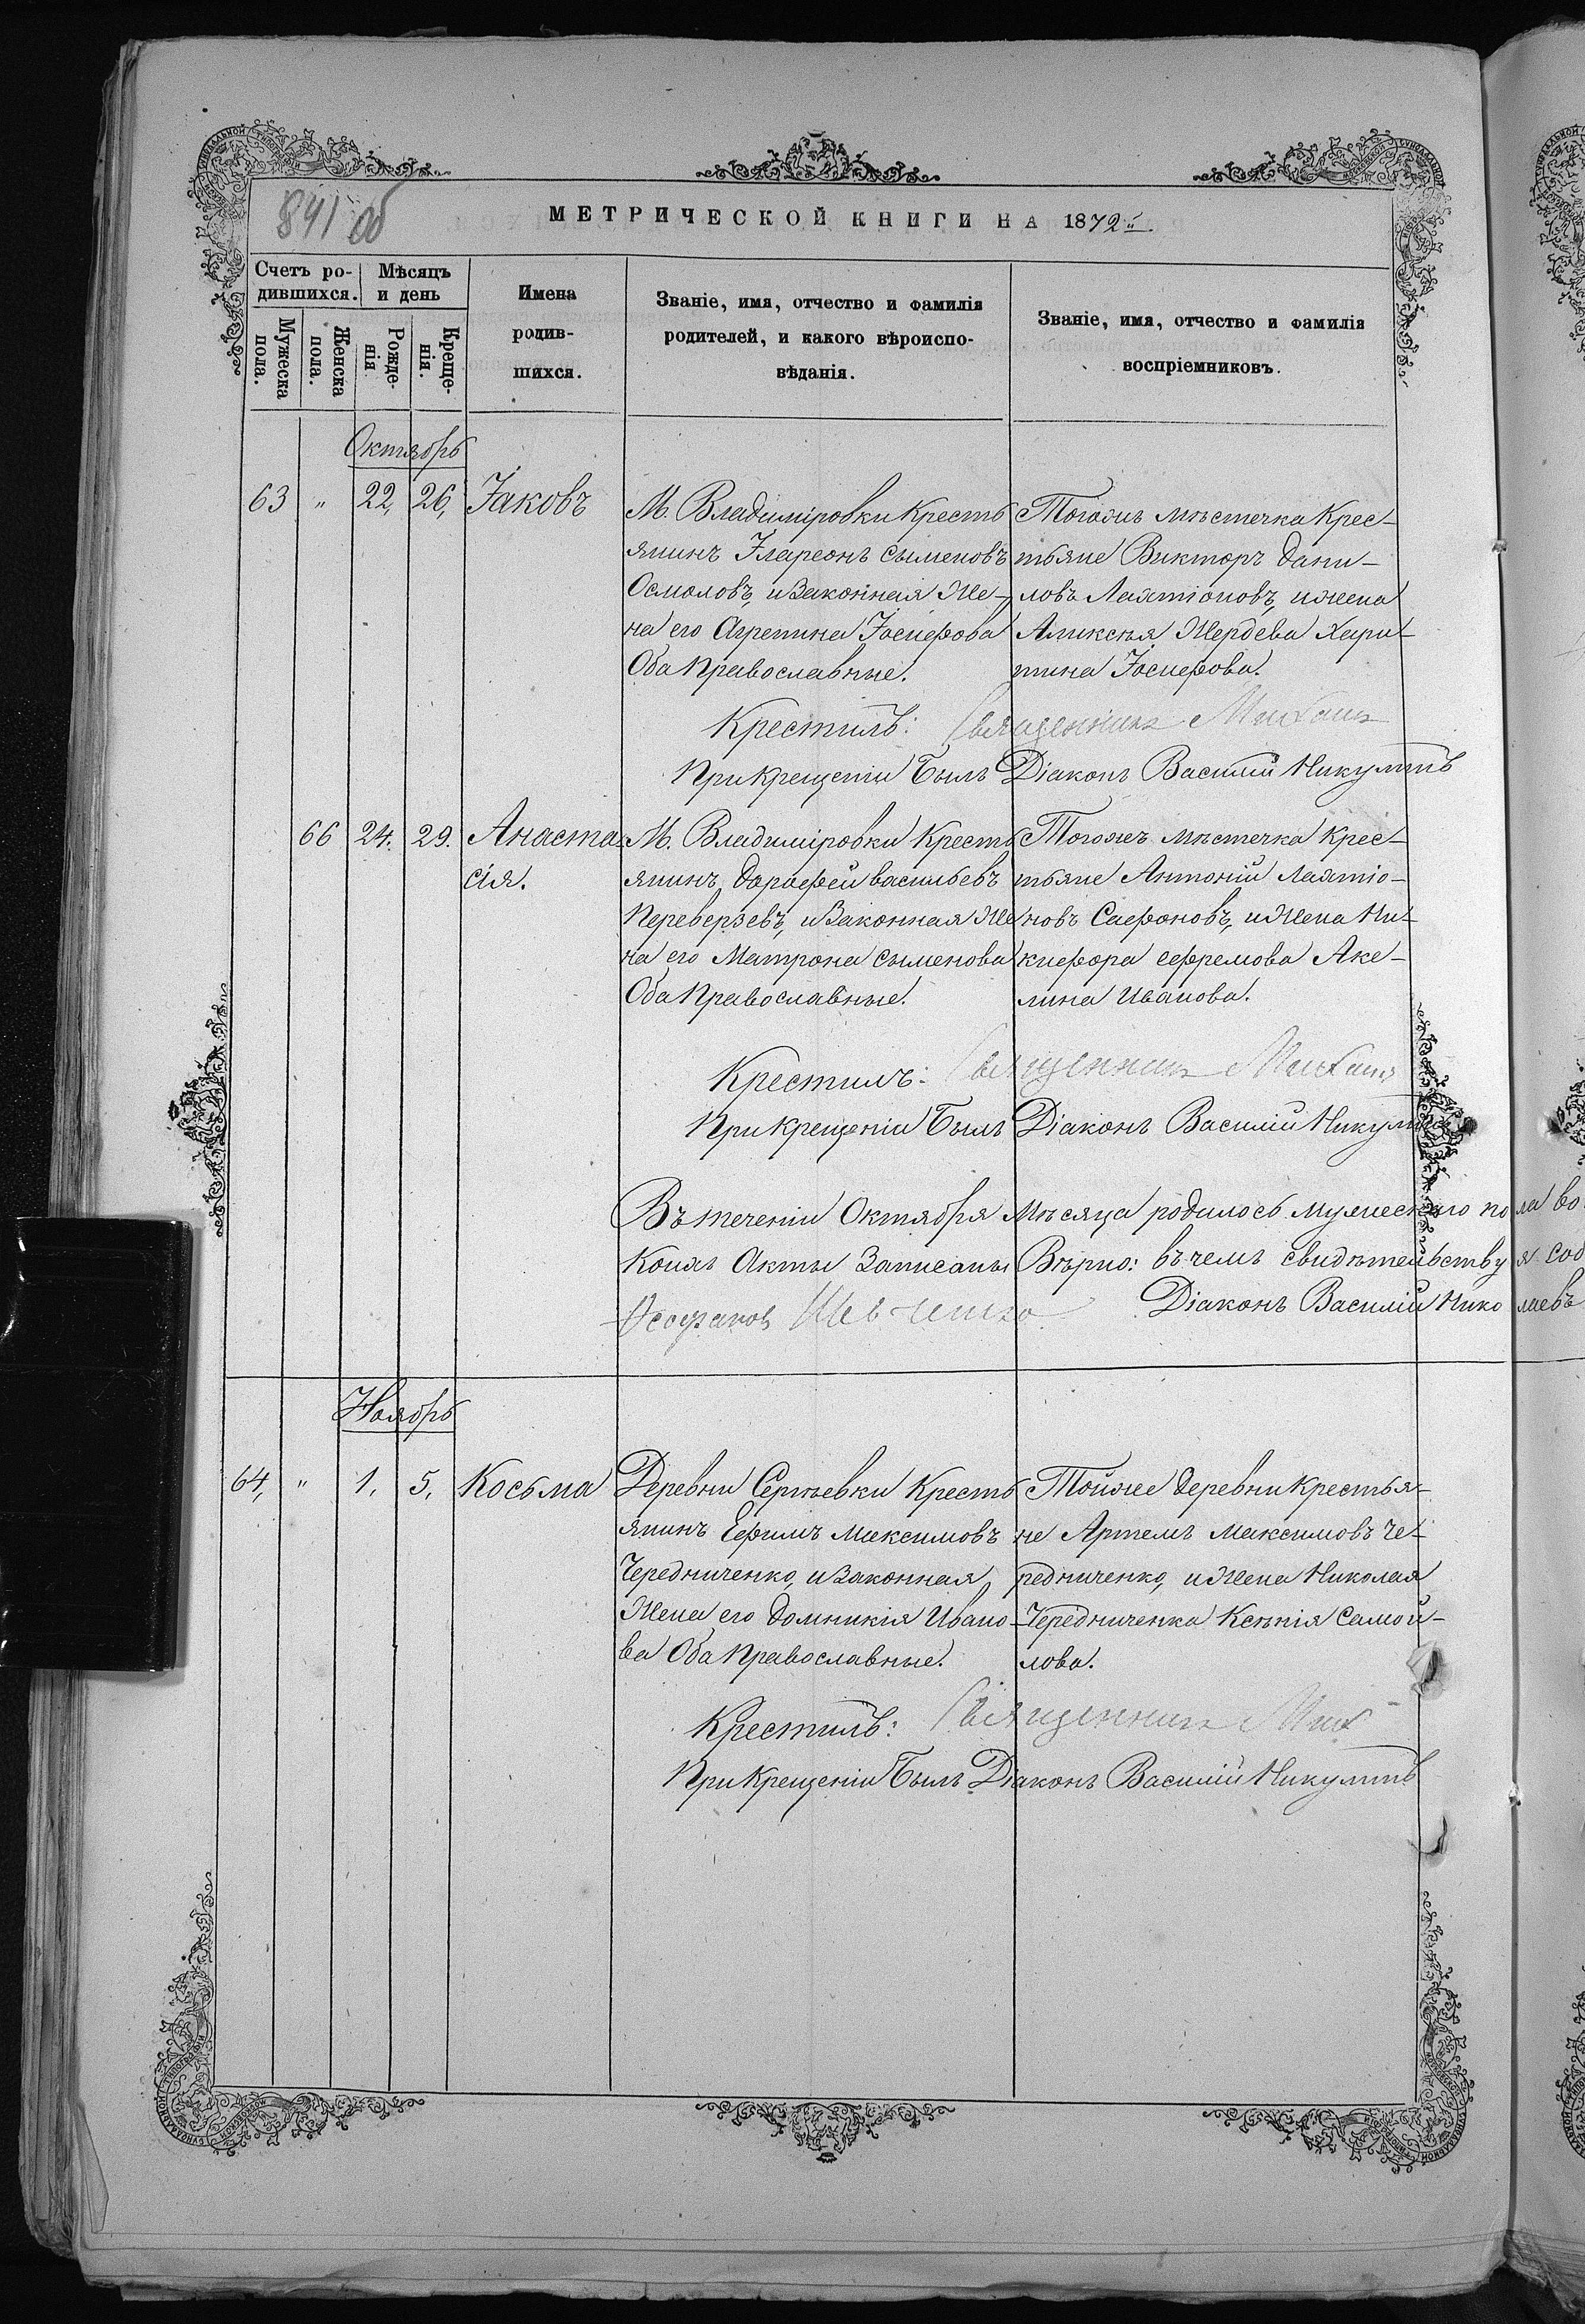 841 об
МЕТРИЧЕСКОЙ КНИГИ НА 1872й.
Счетъ ро-
дившихся.
Мѣсяцъ
и день
Мужеска
пола.
Женска
пола.
Рожде-
нія
Креще-
нія.
Имена
родив-
шихся.
Званіе, имя, отчество и фамилія
родителей, и какого вѣроиспо-
вѣданія.
Званіе, имя, отчество и фамилія
воспріемниковъ.
Октябрь
63 " 22, 26, Іаковъ
М. Владиміровки Кресть
янинъ Ілареонъ Сыменовъ
Осмоловъ, и Законная Же-
на его Агрепина Іосифова
Оба Православные.
Тогожъ мѣстечка Крес-
тьяне Викторъ Дани-
ловъ Лаятіоновъ, и жена
Аликсѣя Жердева Хари-
тина Іосифова.
Крестилъ: Священникъ Михаилъ
При крещеніи былъ Діаконъ Василій
66 24. 29. Анаста
сія.
М. Владиміровки Кресть
янинъ Дорофей Васильевъ
Переверзевъ, и Законная Же
на его Матрона Сыменова
Оба Православные.
Тогожъ мѣстечка Крес-
тьяне Антоній Лаятіо-
новъ Сафоновъ, и Жена Ни-
кифора Ефремова Аке-
лина Иванова.
Крестилъ: Священникъ Михаилъ
При крещеніи былъ Діаконъ Василій
Въ теченіи Октября Мѣсяца родилось мужескаго пола во
Коихъ Акты Записаны Вѣрно: въ чемъ свидѣтельствуя соб
Діаконъ Василій Николаевъ
Феофановъ
Ноябрь
64, " 1, 5, Косьма
Деревни Сергѣевки Кресть
янинъ Ефимъ Максимовъ
Чередниченко, и Законная
Жена его Домникія Ивано-
ва Оба Православные.
Тойже Деревни Крестья-
не Артемъ Максимовъ Че-
редниченко, и Жена Николая
Чередниченка Ксѣнія Самой-
лова.
Крестилъ: Священникъ Мих
При крещеніи былъ Діаконъ Василій